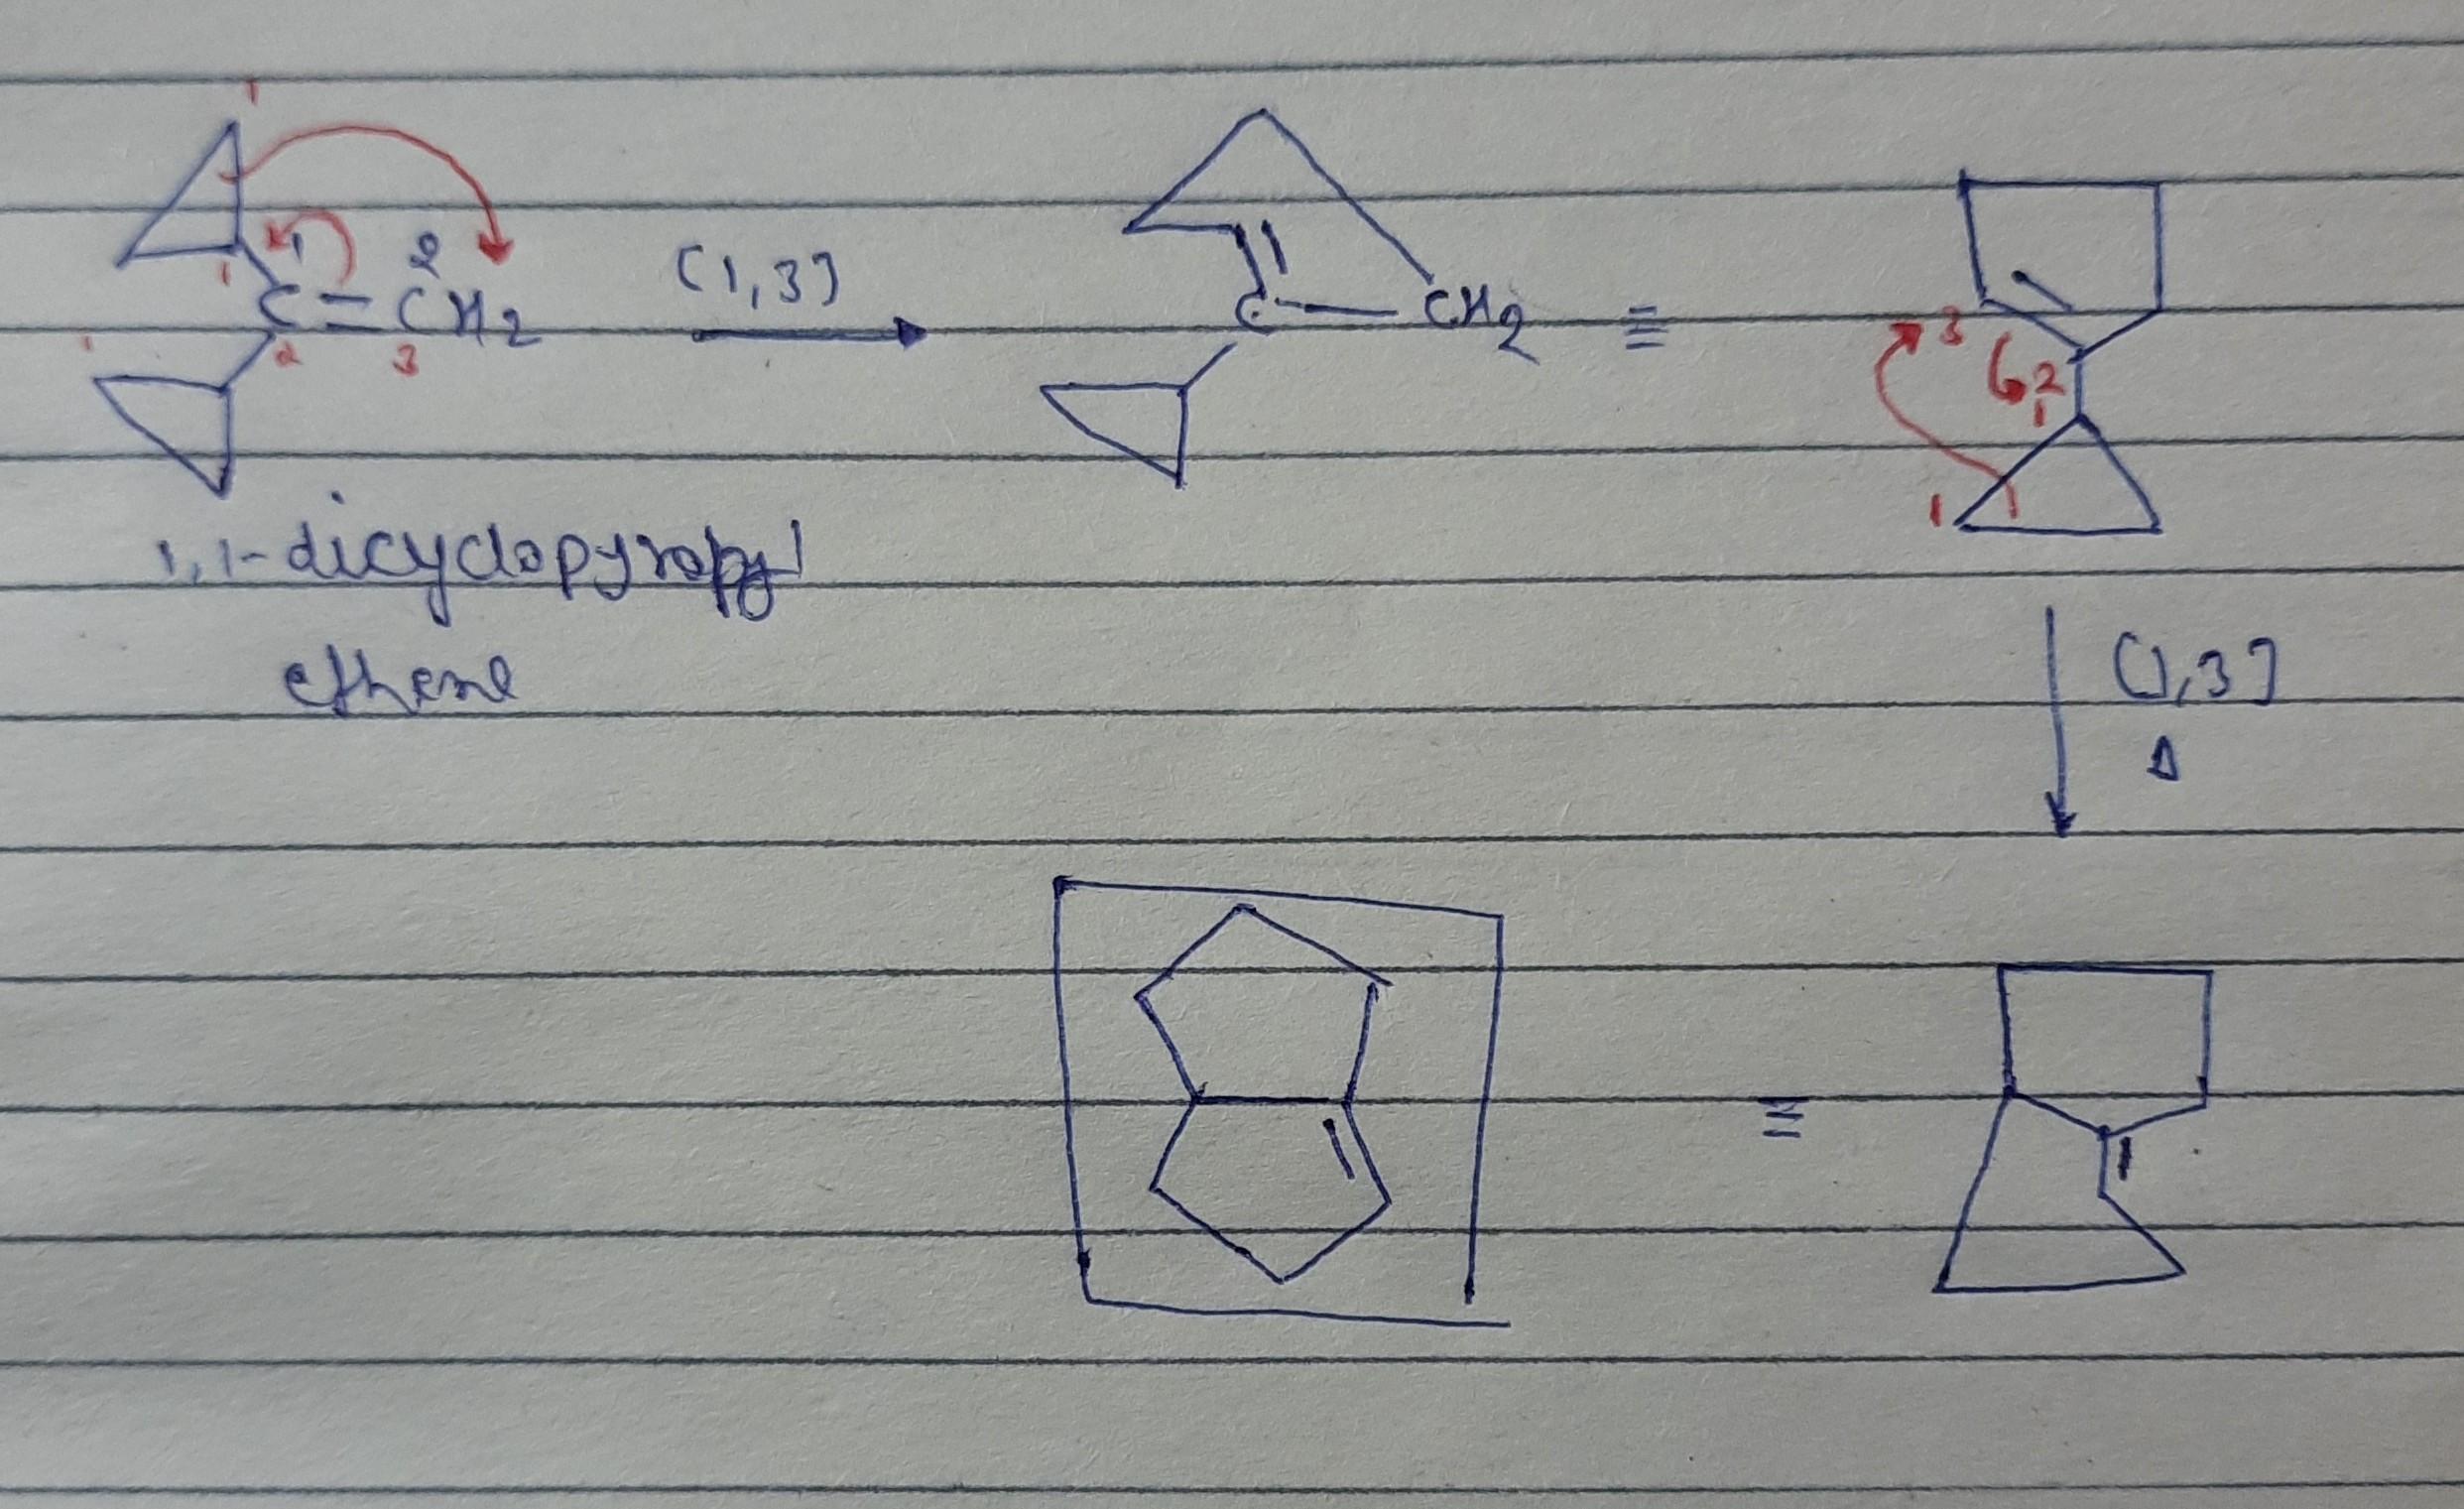 1
1 2
C=CH2
1 1 2 3
[1,3]
C—CH2
≡
3 2
1
1
1,1-dicyclopyropyl
ethene
[1,3]
Δ
≡